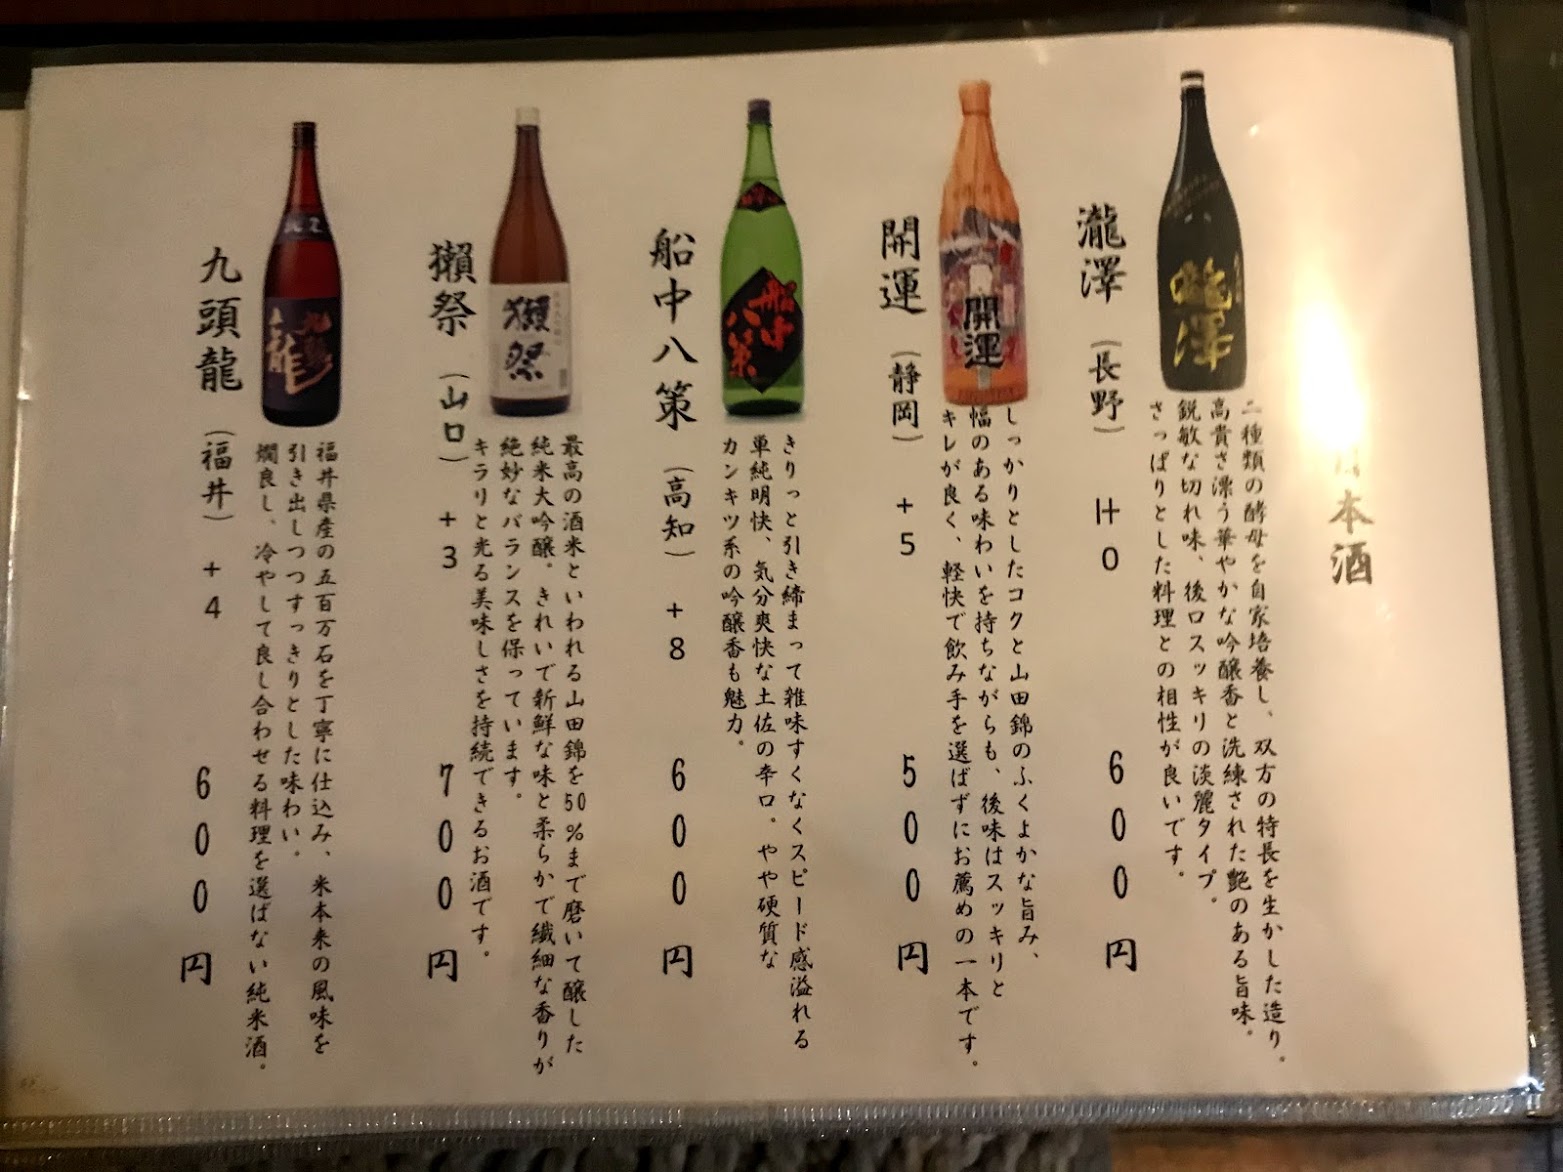 本酒
瀧澤（長野） ±0 600円
二種類の酵母を自家培養し、双方の特長を生かした造り。
高貴さ漂う華やかな吟醸香と洗練された艶のある旨味。
鋭敏な切れ味、後口スッキリの淡麗タイプ。
さっぱりとした料理との相性が良いです。
瀧澤
開運（静岡） +5 500円
しっかりとしたコクと山田錦のふくよかな旨み、
幅のある味わいを持ちながらも、後味はスッキリと
キレが良く、軽快で飲み手を選ばずにお薦めの一本です。
開運
船中八策（高知） +8 600円
きりっと引き締まって雑味すくなくスピード感溢れる
単純明快、気分爽快な土佐の辛口。やや硬質な
カンキツ系の吟醸香も魅力。
船中
八策
獺祭（山口） +3 700円
最高の酒米といわれる山田錦を50%まで磨いて醸した
純米大吟醸。きれいで新鮮な味と柔らかで繊細な香りが
絶妙なバランスを保っています。
キラリと光る美味しさを持続できるお酒です。
獺祭
九頭龍（福井） +4 600円
福井県産の五百万石を丁寧に仕込み、米本来の風味を
引き出しつつすっきりとした味わい。
燗良し、冷やして良し合わせる料理を選ばない純米酒。
九頭
龍